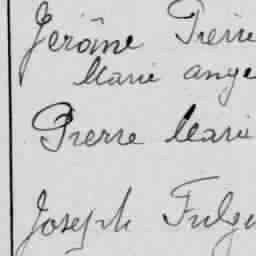 Jérôme Pierre
Marie Ange
Pierre Marie
Joseph Fulge